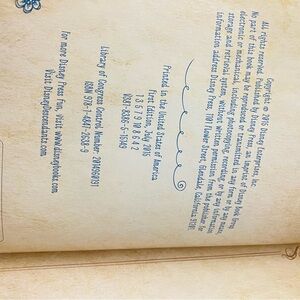 Copyright © 2015 Disney Enterprises, Inc.
All rights reserved. Published by Disney Press, an imprint of Disney Book Group.
No part of this book may be reproduced or transmitted in any form or by any means,
electronic or mechanical, including photocopying, recording, or by any information
storage and retrieval system, without written permission from the publisher. For
information address Disney Press, 1101 Flower Street, Glendale, California 91201.
Printed in the United States of America
First Edition, July 2015
1 3 5 7 9 10 8 6 4 2
Library of Congress Control Number:
ISBN 978-1-4847-2638-9
For more Disney Press fun, visit www.disneybooks.com
Visit DisneyDescendants.com